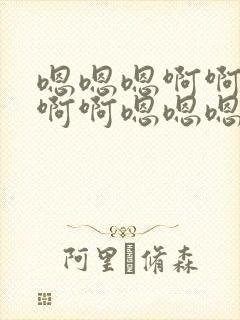 嗯嗯嗯啊啊
啊啊嗯嗯嗯
阿里 脩森